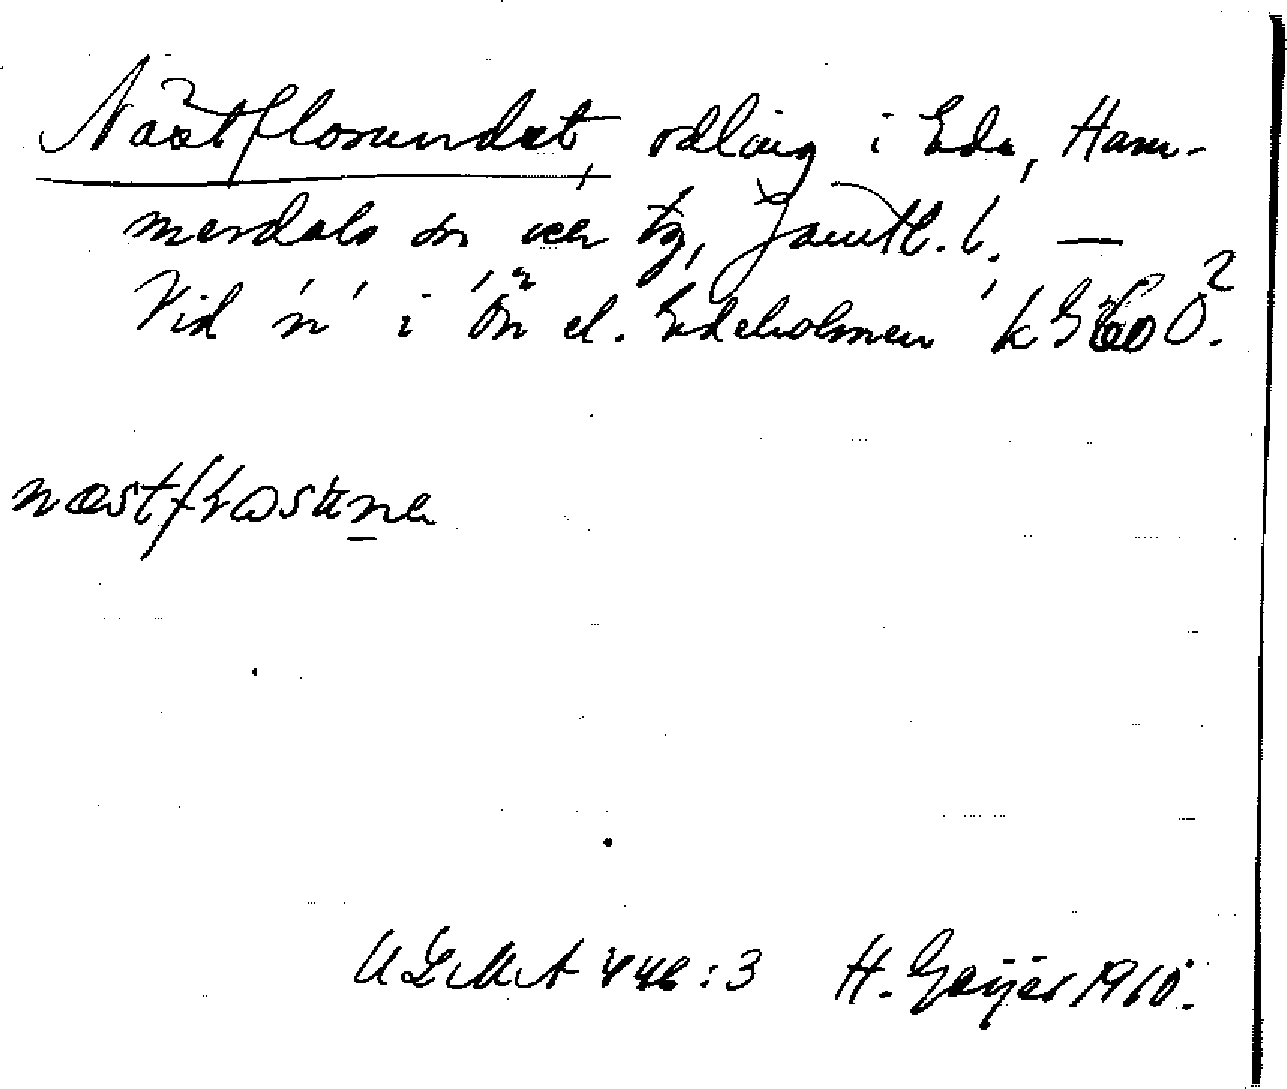 Nästflosundet, odling i Ede, Ham-
merdals sn och tg, Jämtl. l. —
Vid 'n' i 'Ön el. Edeholmen' k G 60 O².
næstf
ULMA 446:3 H. Geijer 1910.